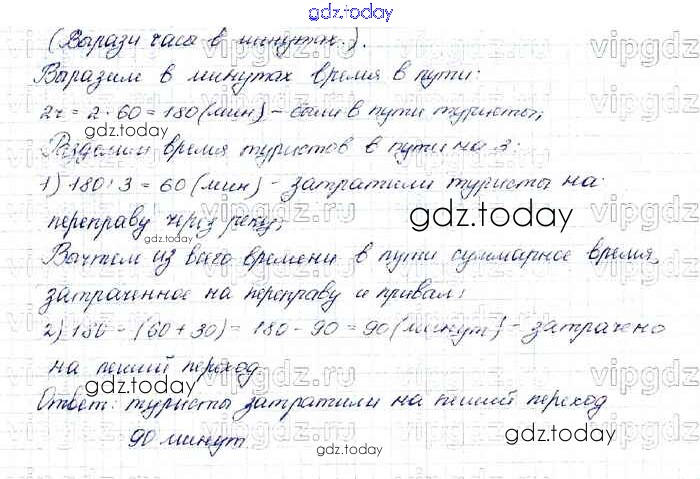 gdz.today
(Вырази часы в минутах.).
Выразим в минутах время в пути:
2ч = 2 · 60 = 180 (мин) - были в пути туристы;
gdz.today
Разделим время туристов в пути на 3:
1) 180 : 3 = 60 (мин) - затратили туристы на
переправу через реку;
gdz.today
gdz.today
Вычтем из всего времени в пути суммарное время,
затраченное на переправу и привал:
2) 180 - (60 + 30) = 180 - 90 = 90 (минут) - затрачено
на пеший переход.
gdz.today
Ответ: туристы затратили на пеший переход
90 минут.
gdz.today
vipgdz.ru